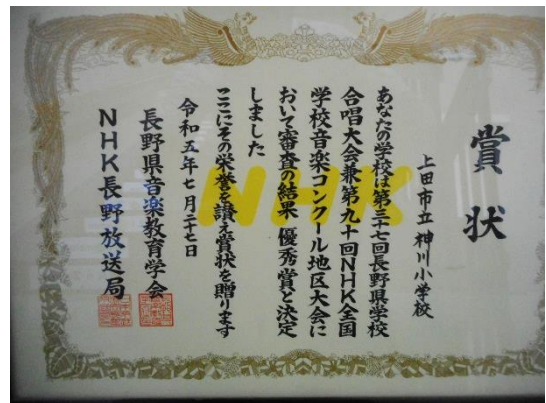 賞状
上田市立 神川小学校
あなたの学校は第三十七回長野県学校
合唱大会兼第九十回NHK全国
学校音楽コンクール地区大会に
おいて審査の結果 優秀賞と決定
しました
ここにその栄誉を讃え賞状を贈ります
令和五年七月二十七日
長野県音楽教育学会
NHK長野放送局
NHK